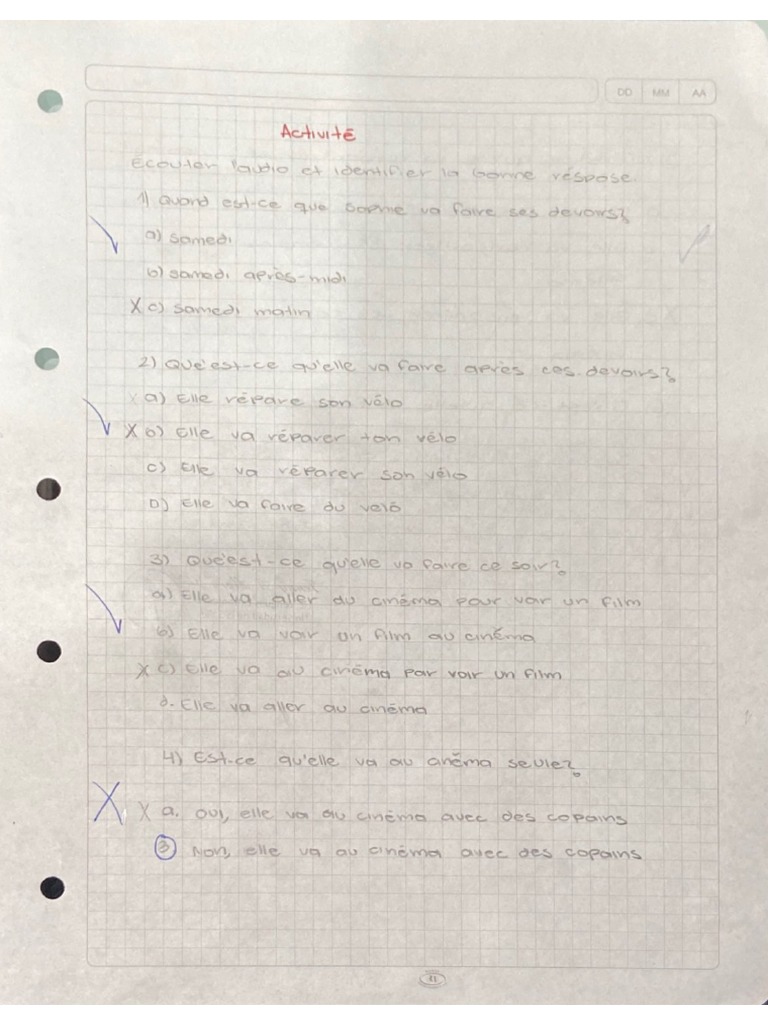 DD MM AA
Activité
Écouter l'audio et identifier la bonne résponse.
1) Quand est-ce que va faire ses devoirs?
a) samedi
b) samedi après-midi
X c) samedi matin
2) Que'est-ce qu'elle va faire après ces devoirs?
a) Elle répare son vélo
X b) Elle va réparer ton vélo
c) Elle va réparer son vélo
D) Elle va faire du veló
3) Que'est-ce qu'elle va faire ce soir?
a) Elle va aller au cinéma pour voir un film
b) Elle va voir un film au cinéma
X c) Elle va au cinéma par voir un film
d. Elle va aller au cinéma
4) Est-ce qu'elle va au cinéma seule?
X X a. Oui, elle va au cinéma avec des copains
Non, elle va au cinéma avec des copains